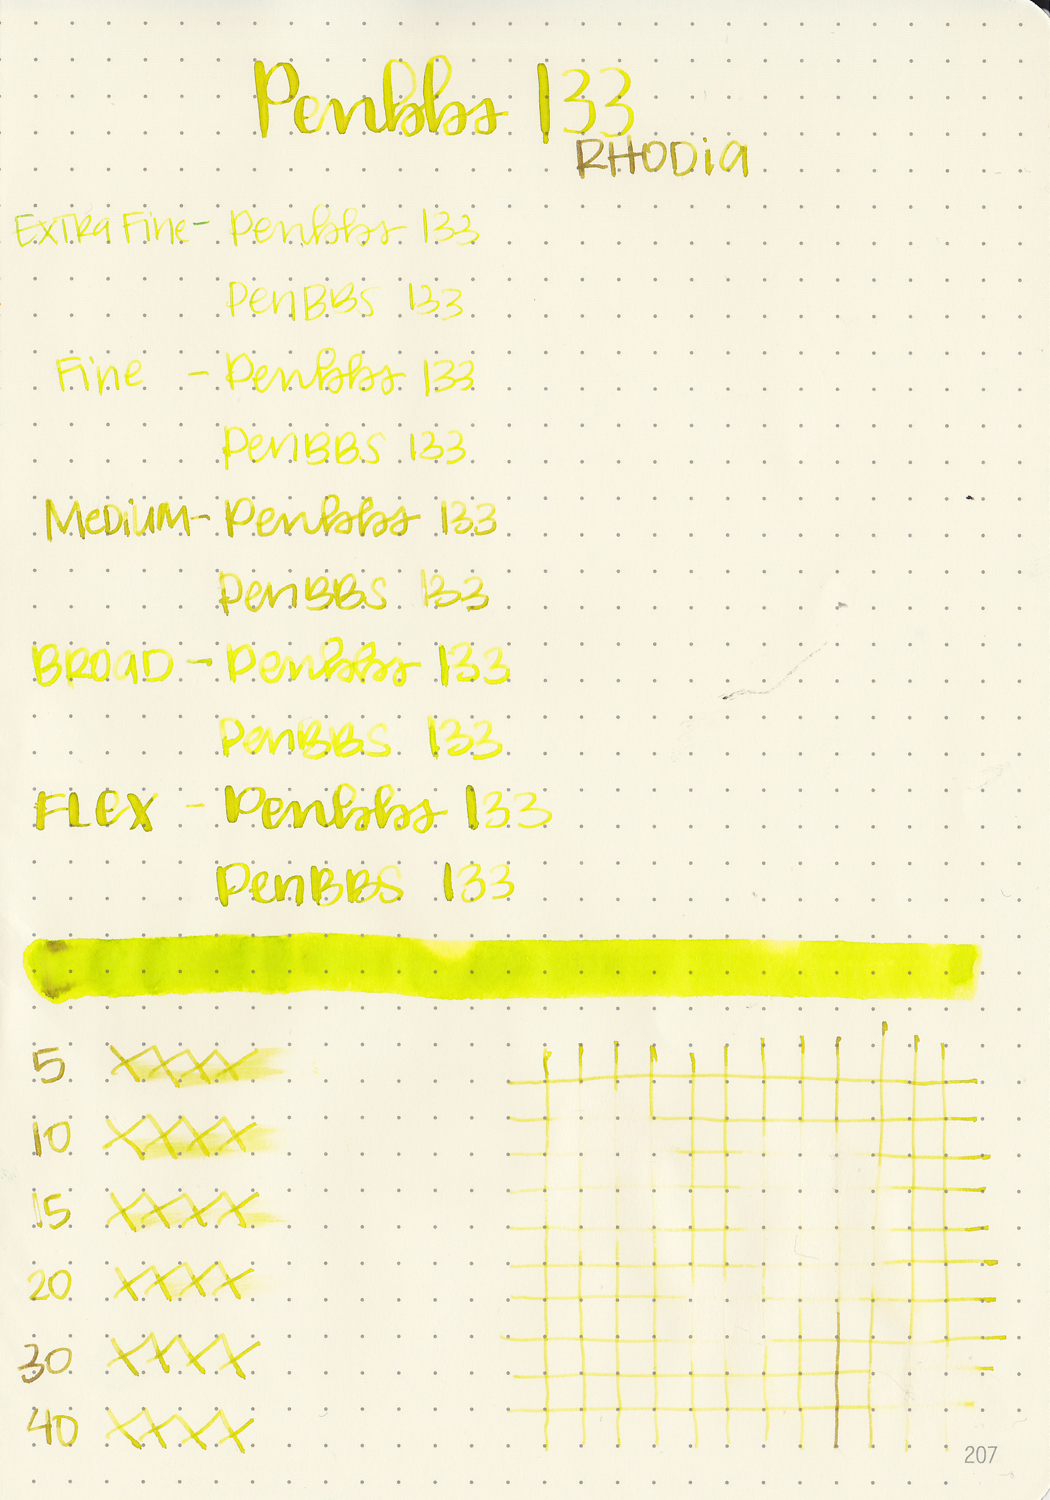 Penbbs 133
RHODia
ExTRa Fine - Penbbs 133
PenBBS 133
Fine - Penbbs 133
PenBBS 133
MeDiuM - Penbbs 133
PenBBS 133
BROaD - Penbbs 133
PenBBS 133
FLex - Penbbs 133
PenBBS 133
5
10
15
20
30
40
207